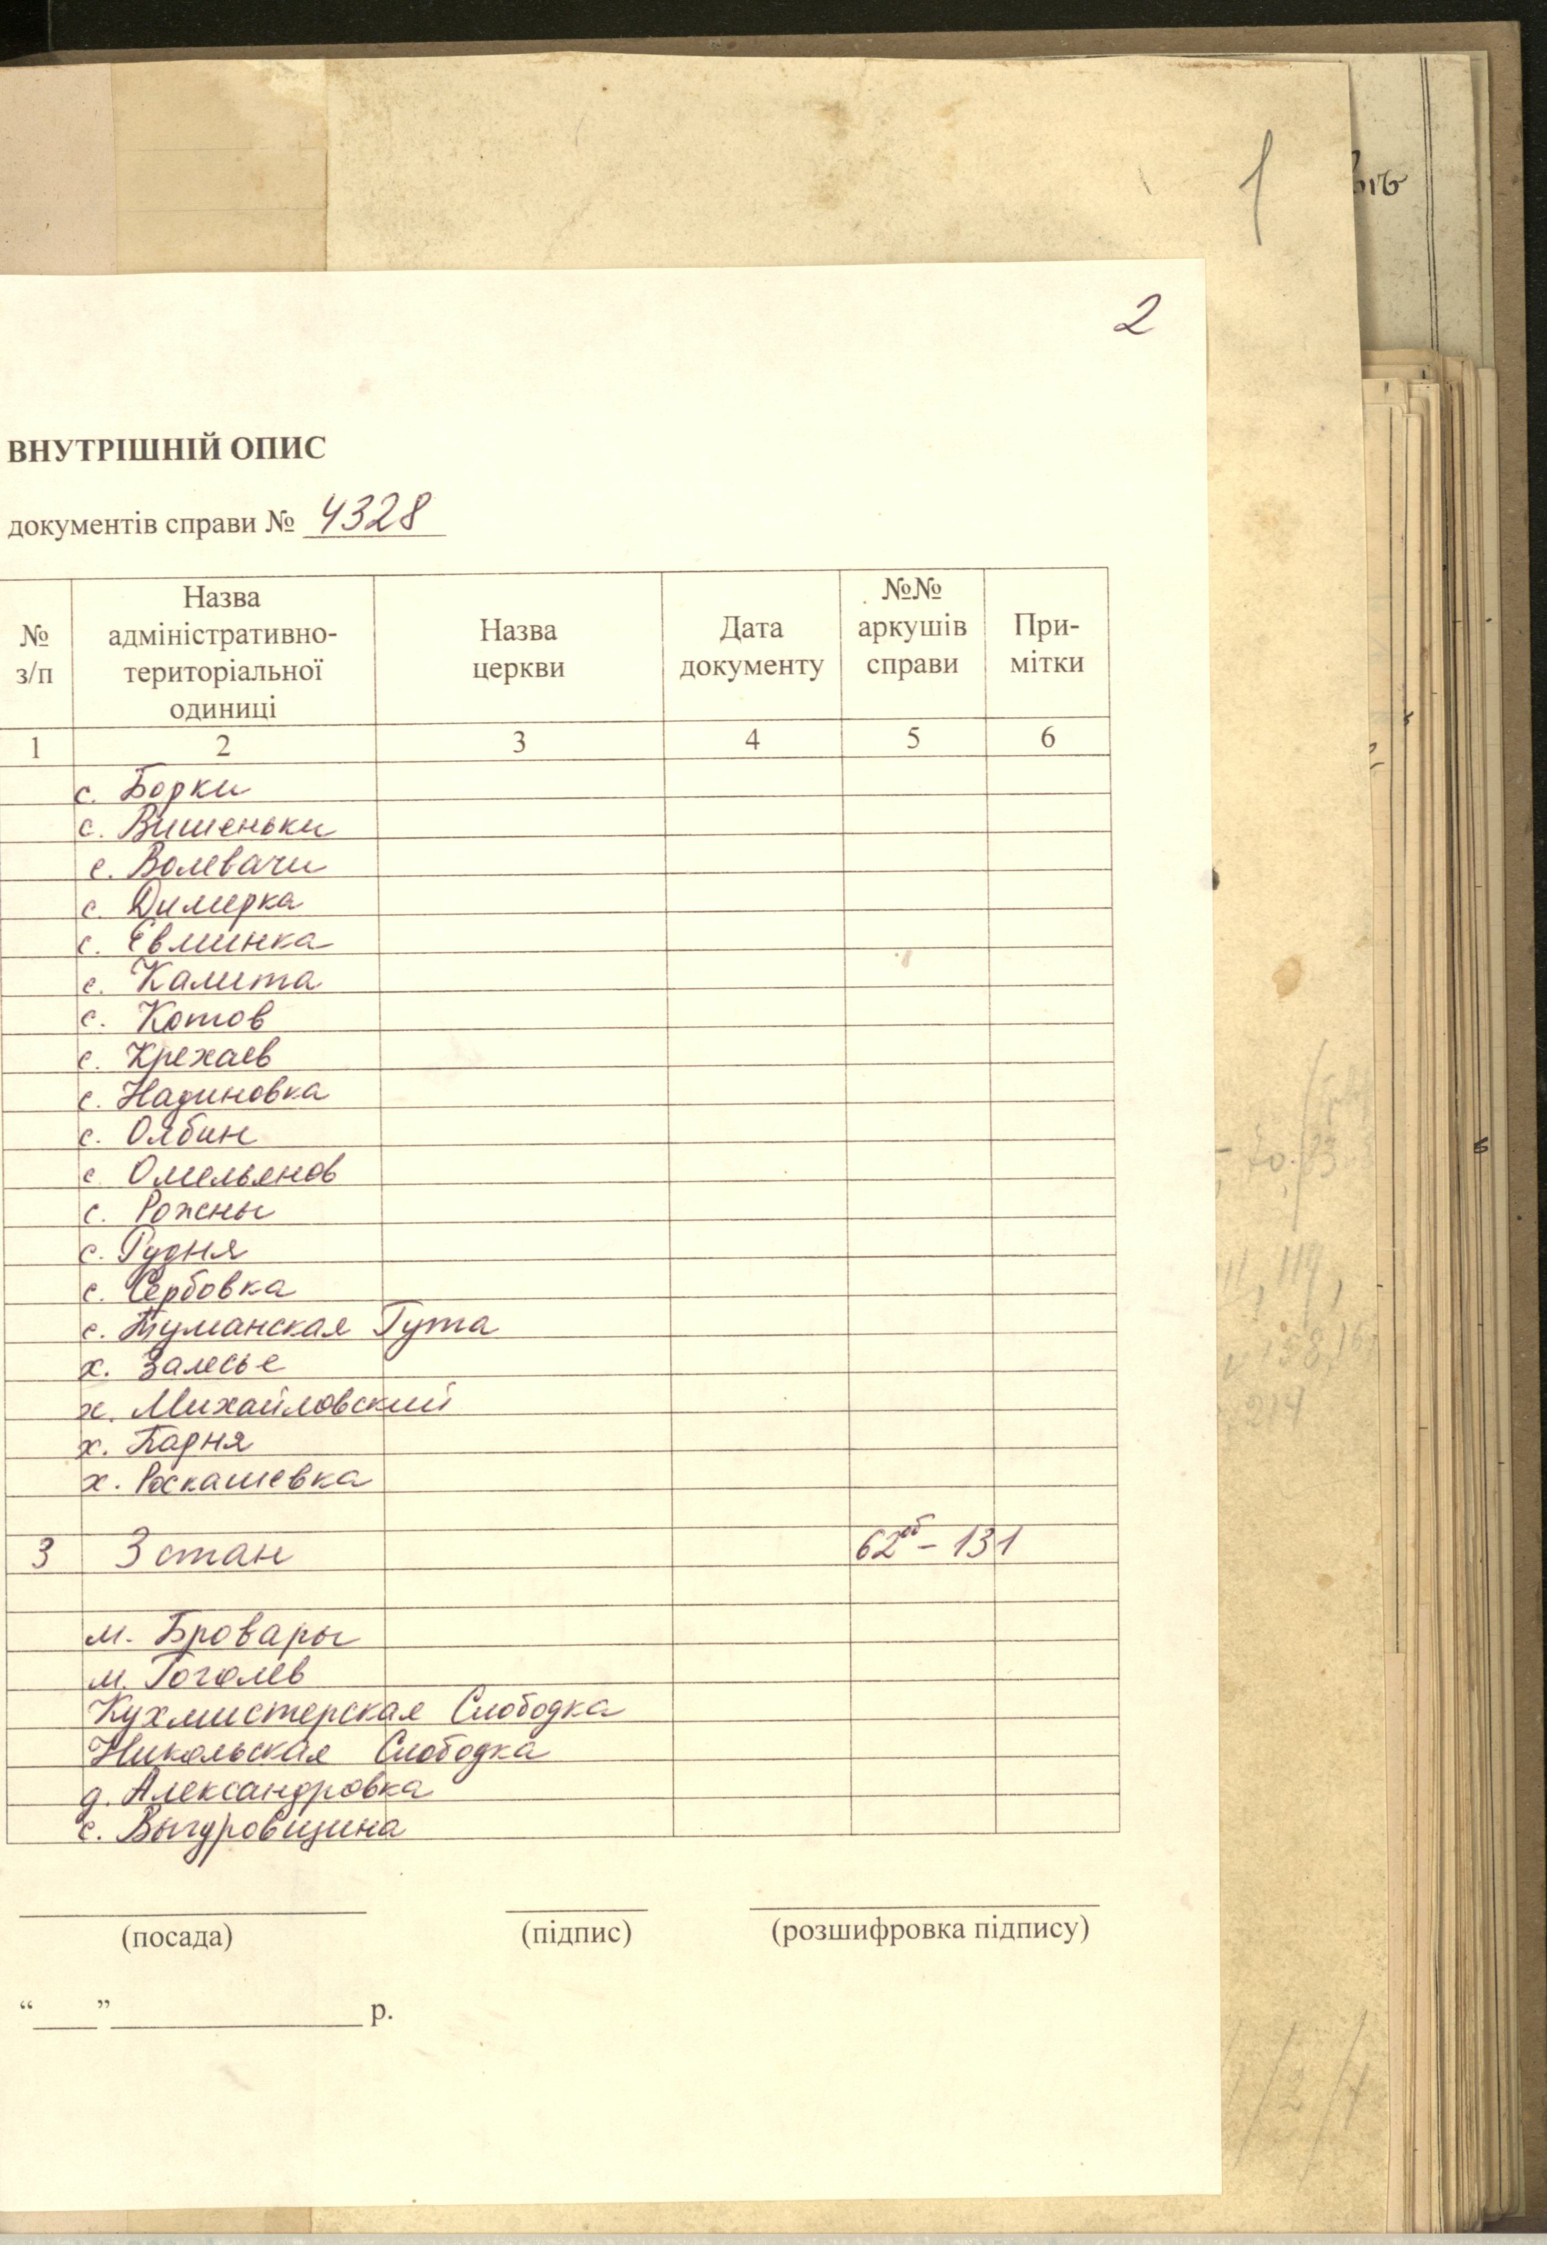 1
2
ВНУТРІШНІЙ ОПИС
документів справи № 4328
№ з/п | Назва адміністративно-територіальної одиниці | Назва церкви | Дата документу | №№ аркушів справи | При-мітки
1 2 3 4 5 6
с. Борки
с. Вишеньки
с. Волевачи
с. Димерка
с. Евминка
с. Калита
с. Котов
с. Крехаев
с. Надиновка
с. Олбин
с. Омельянов
с. Рожны
с. Рудня
с. Сербовка
с. Туманская Гута
х. Залесье
х. Михайловский
х. Парня
х. Роскашевка
3 3 стан 62об – 131
м. Бровары
м. Гоголев
Кухмистерская Слободка
Никольская Слободка
д. Александровка
с. Выгуровщина
(посада) (підпис) (розшифровка підпису)
“___”______________ р.